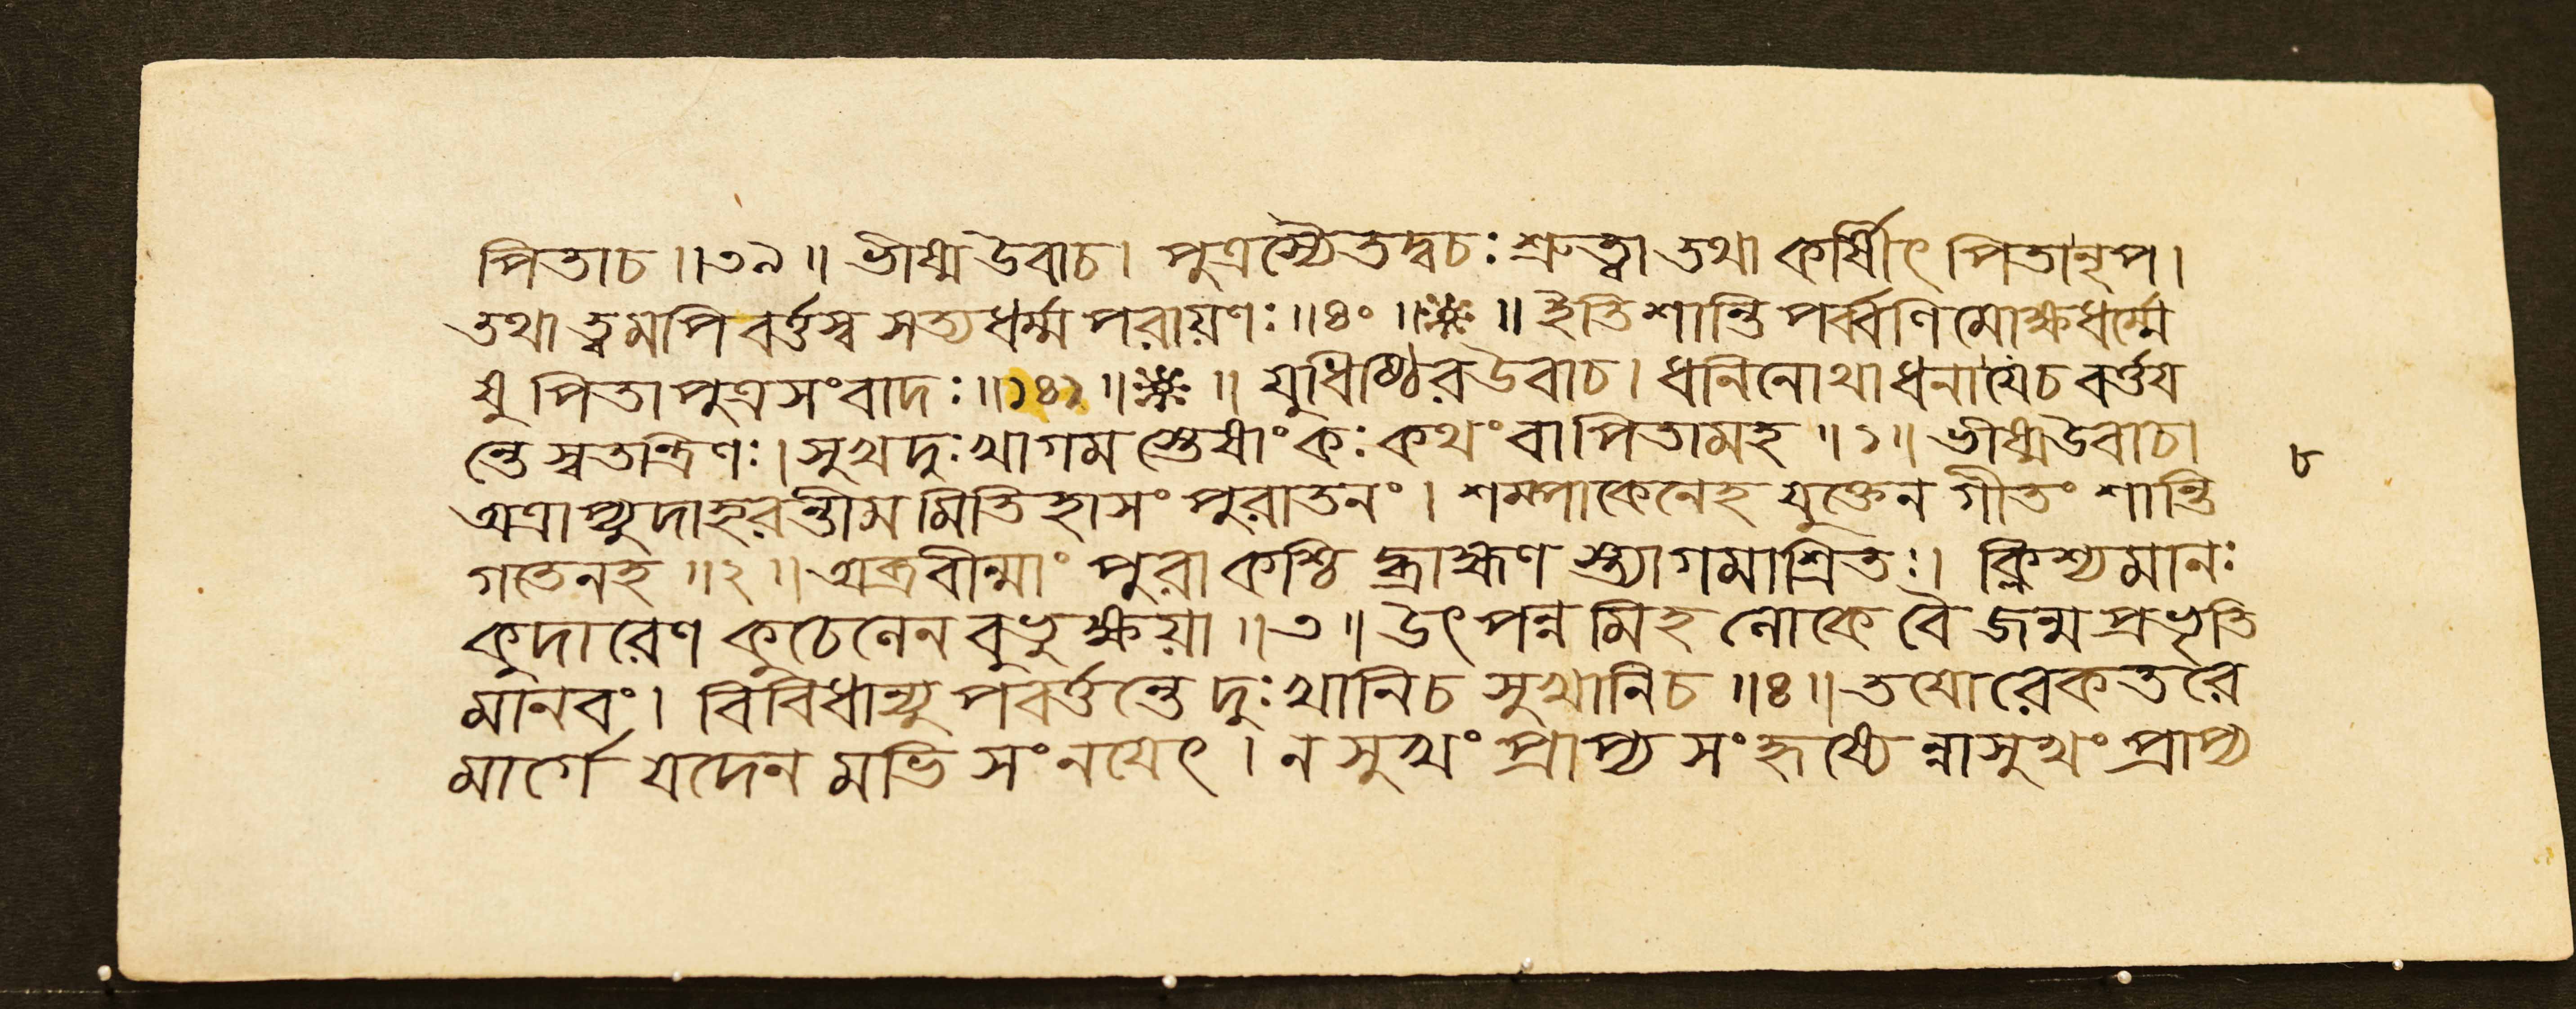 পিতাচ ॥৩৯॥ ভীষ্ম উবাচ। পুত্রস্যৈতদ্বচঃ শ্রুত্বা তথা কর্ষীৎ পিতানৃপ।
তথা ত্বমপি বর্ত্তস্ব সত্যধর্ম্ম পরায়ণঃ ॥৪০ ॥※॥ ইতি শান্তি পর্ব্বণি মোক্ষধর্ম্মে
যু পিতাপুত্রসংবাদঃ ॥১৪১॥※॥ যুধিষ্ঠির উবাচ। ধনিনোথাধনাযেচ বর্ত্তয
ন্তে স্বতান্ত্রিণঃ। সুখদুঃখাগমস্তেষাং কঃ কথং বা পিতামহ ॥১॥ ভীষ্মউবাচ।
অত্রাপ্যুদাহরন্তীমমিতিহাসং পুরাতনং। শম্পাকেনেহ যুক্তেন গীতং শান্তি
গতেনহ ॥২॥ অব্রবীন্মাং পুরা কশ্চি দ্ব্রাহ্মণ স্ত্যাগমাশ্রিতঃ। ক্লিশ্যমানঃ
কুদারেণ কুচেলেন বুভুক্ষয়া ॥৩॥ উৎপন্নমিহ লোকে বৈ জন্মপ্রভৃতি
মানবং। বিবিধান্যুপবর্ত্তন্তে দুঃখানিচ সুখানিচ ॥৪॥ তযোরেকতরে
মার্গে যদেন মভি সংনযেৎ। ন সুখং প্রাপ্য সংহৃষ্যেন্নাসুখং প্রাপ্য
৮